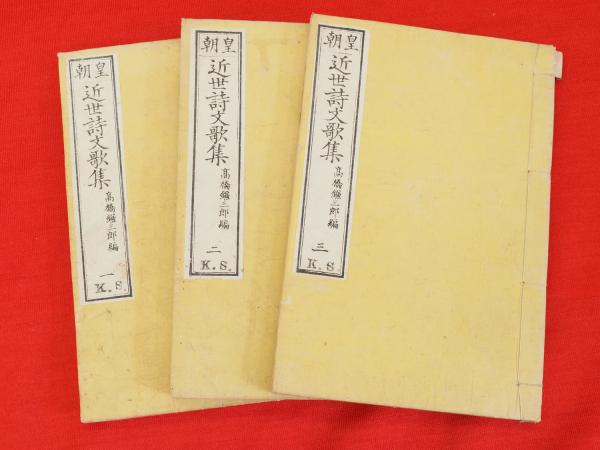 皇朝
近世詩文歌集
高橋鑑三郎編
一
K.S.
皇朝
近世詩文歌集
高橋鑑三郎編
二
K.S.
皇朝
近世詩文歌集
高橋鑑三郎編
三
K.S.